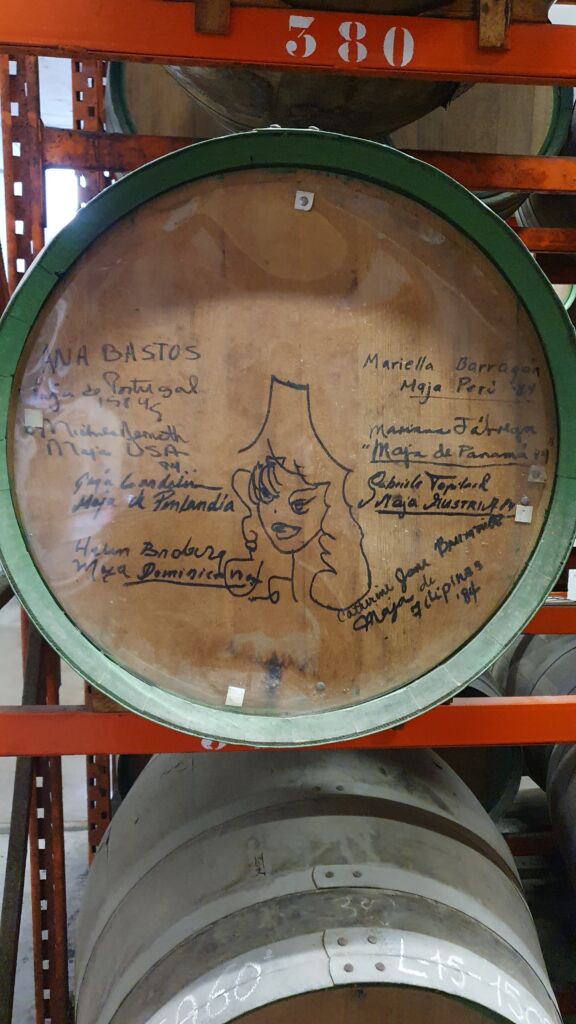 380
ANA BASTOS
Maja de Portugal
1984
Michele Nemeth
Maja USA
84
Maja de Finlandia
Helen Broburg
Maja Dominicana
Mariella Barragán
Maja Perú '84
Mariana Fábrega
"Maja de Panamá 84"
Gabriele
Maja AUSTRIA
Catherine Jane
Maja de
Filipinas
'84
L-15-150